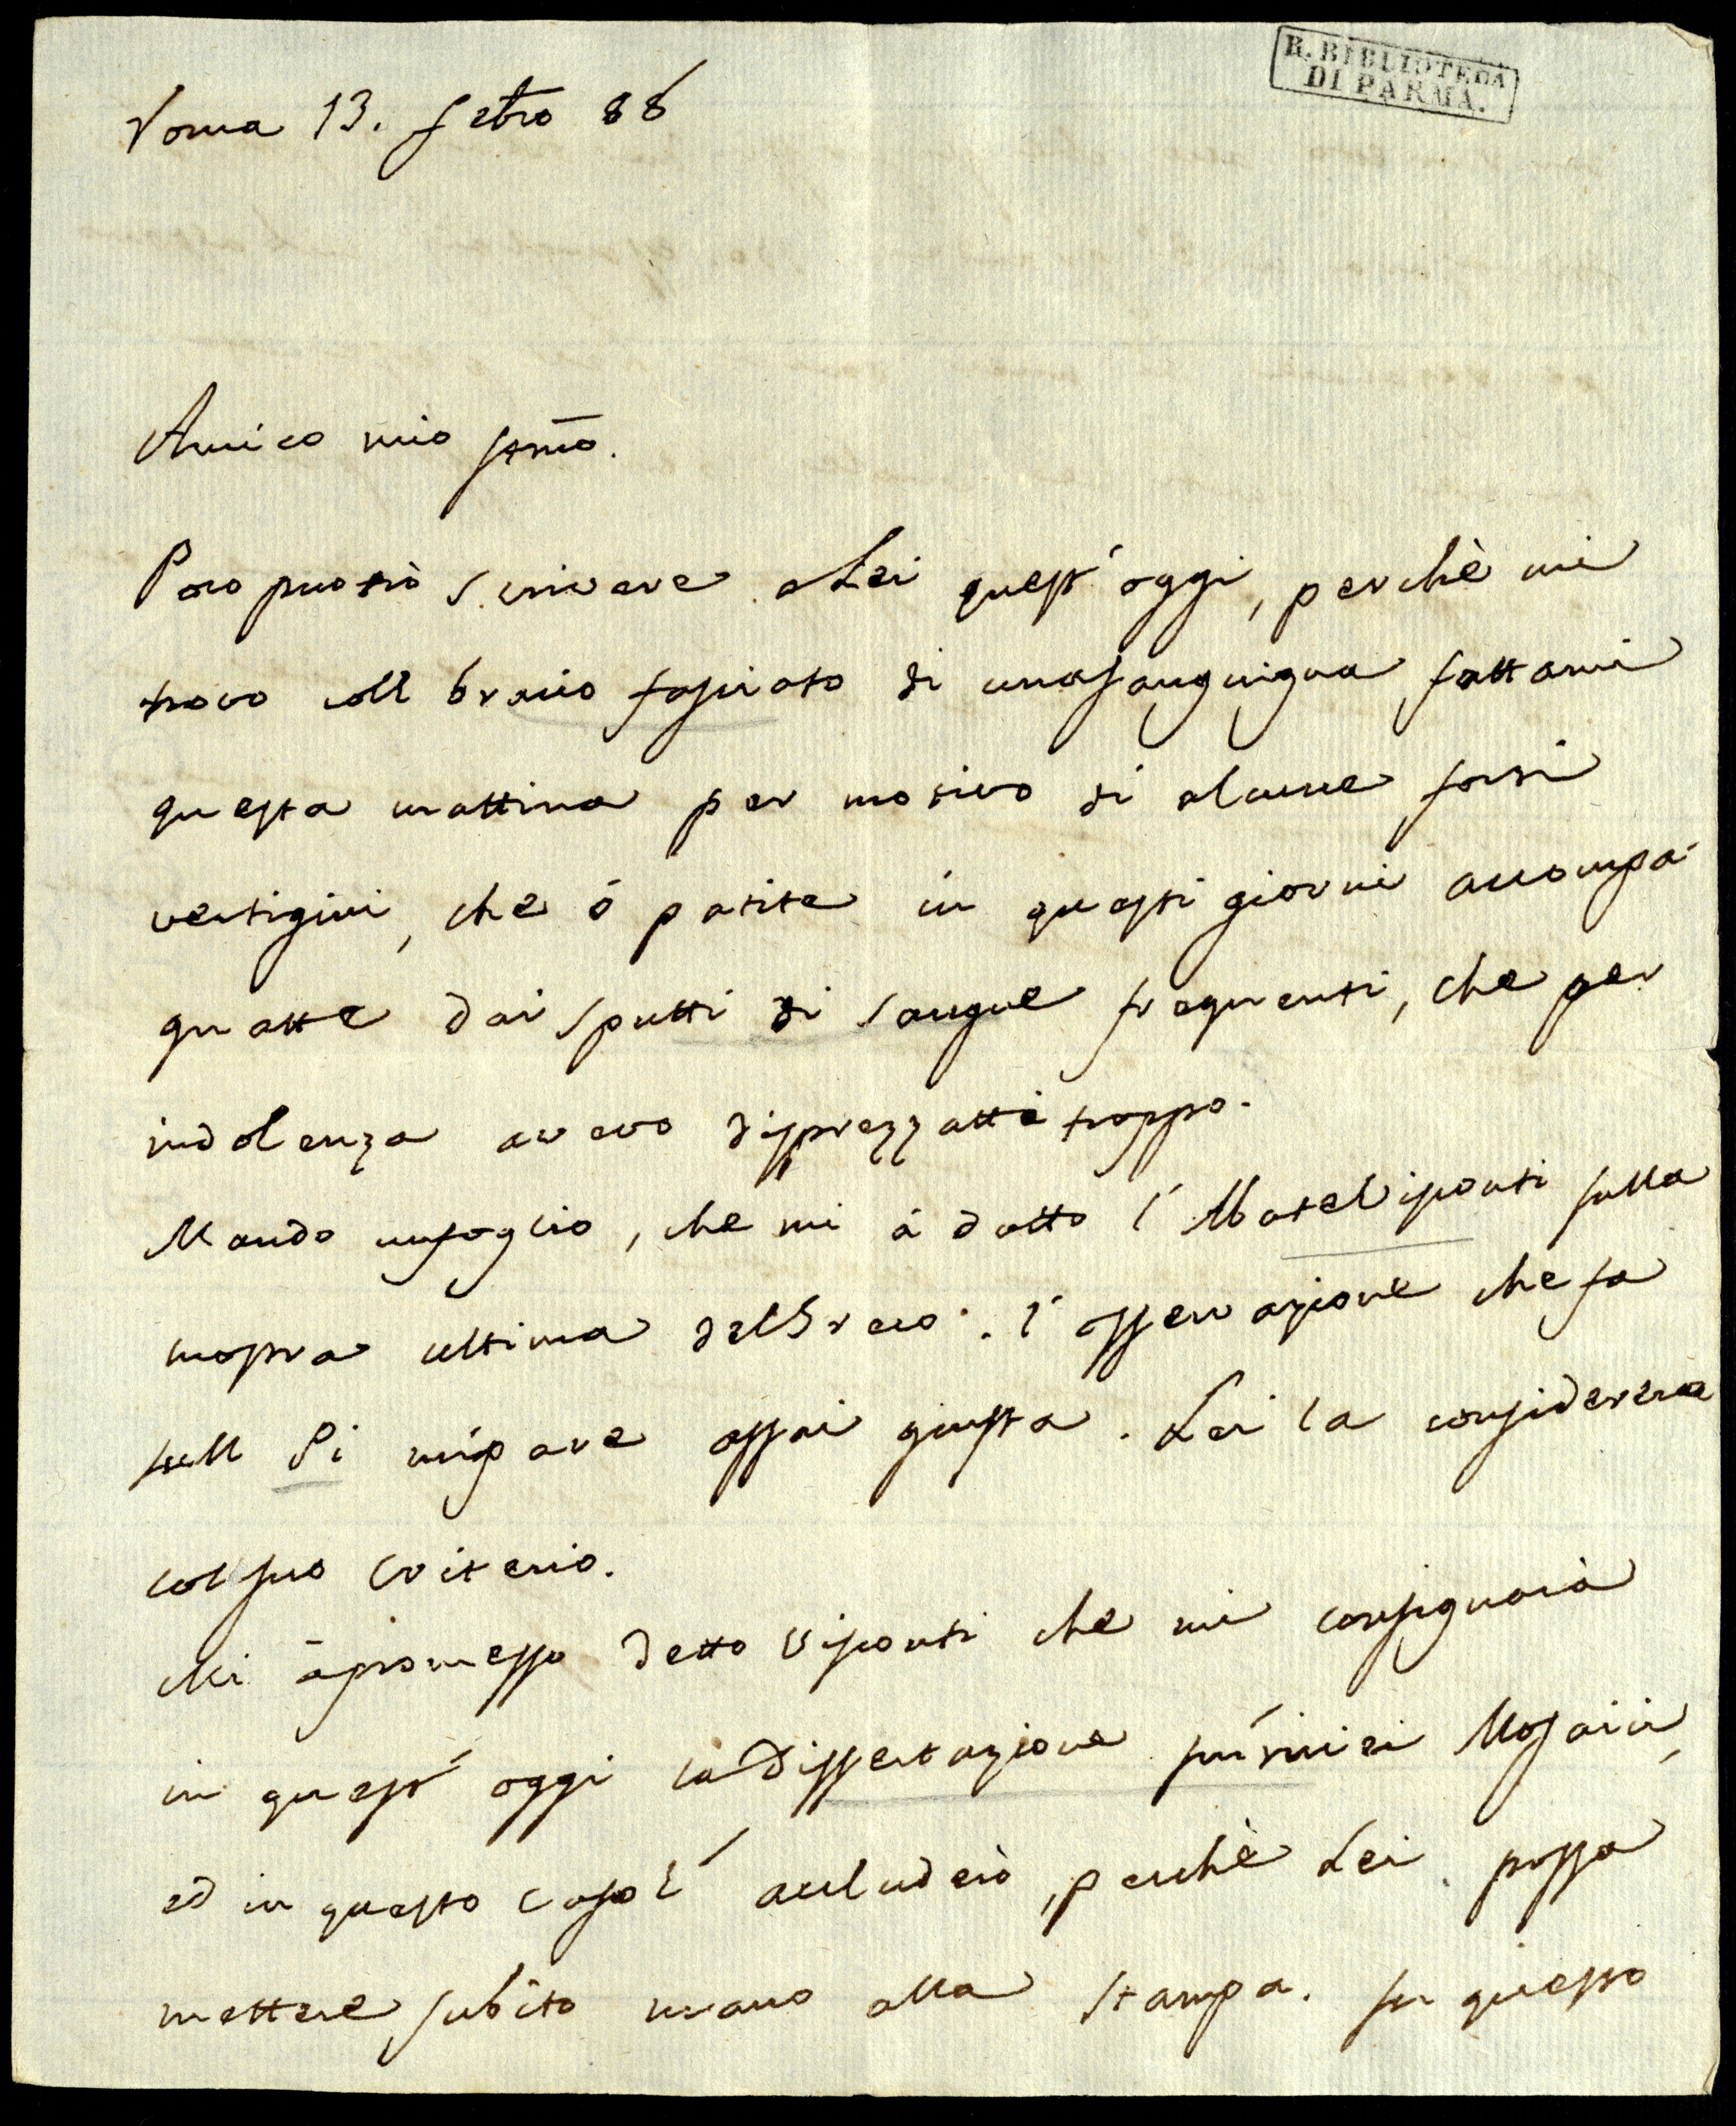 R. BIBLIOTECA
DI PARMA.
Roma 13. Setro 86
Amico mio stmo.
Poco puotrò scrivere a Lei quest'oggi, perchè mi
trovo coll braccio fasciato di una sanguigna fattami
questa mattina per motivo di alcune forti
vertigini, che ó patite in questi giorni accompa
gnatte dai sputti di sangue frequenti, che per
indolenza avevo disprezzatti troppo.
Mando un foglio, che mi à datto l'Abate Visconti sulla
mostra ultima del Greco. l'osservazione che fa
sull Pi mi pare assai giusta. Lei la considererà
col suo criterio.
Mi à promesso detto Visconti che mi consignarà
in quest' oggi la Dissertazione sui Mosaici,
ed in questo caso l' accluderò, perchè Lei possa
mettere subito mano alla stampa. su questo